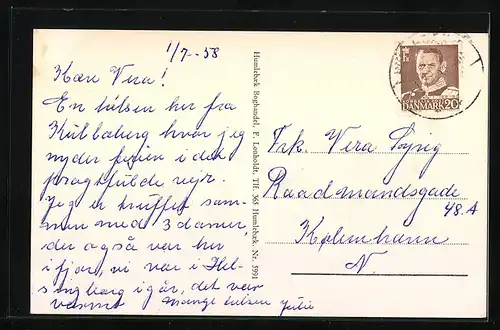 1/7-58
Kære Vera!
En hilsen her fra
Kullaberg hvor jeg
nyder ferien i det
pragtfulde vejr.
Jeg er truffet sam-
men med 3 damer,
der også var her
i fjor, vi var i Hel-
singborg i går, det var
varmt mange hilsen Julie
Humlebæk Boghandel, F. Lonholdt, Tlf. 365 Humlebæk. Nr. 5991
DANMARK 20
Frk. Vera
Raadmandsgade
48.A
København
N.